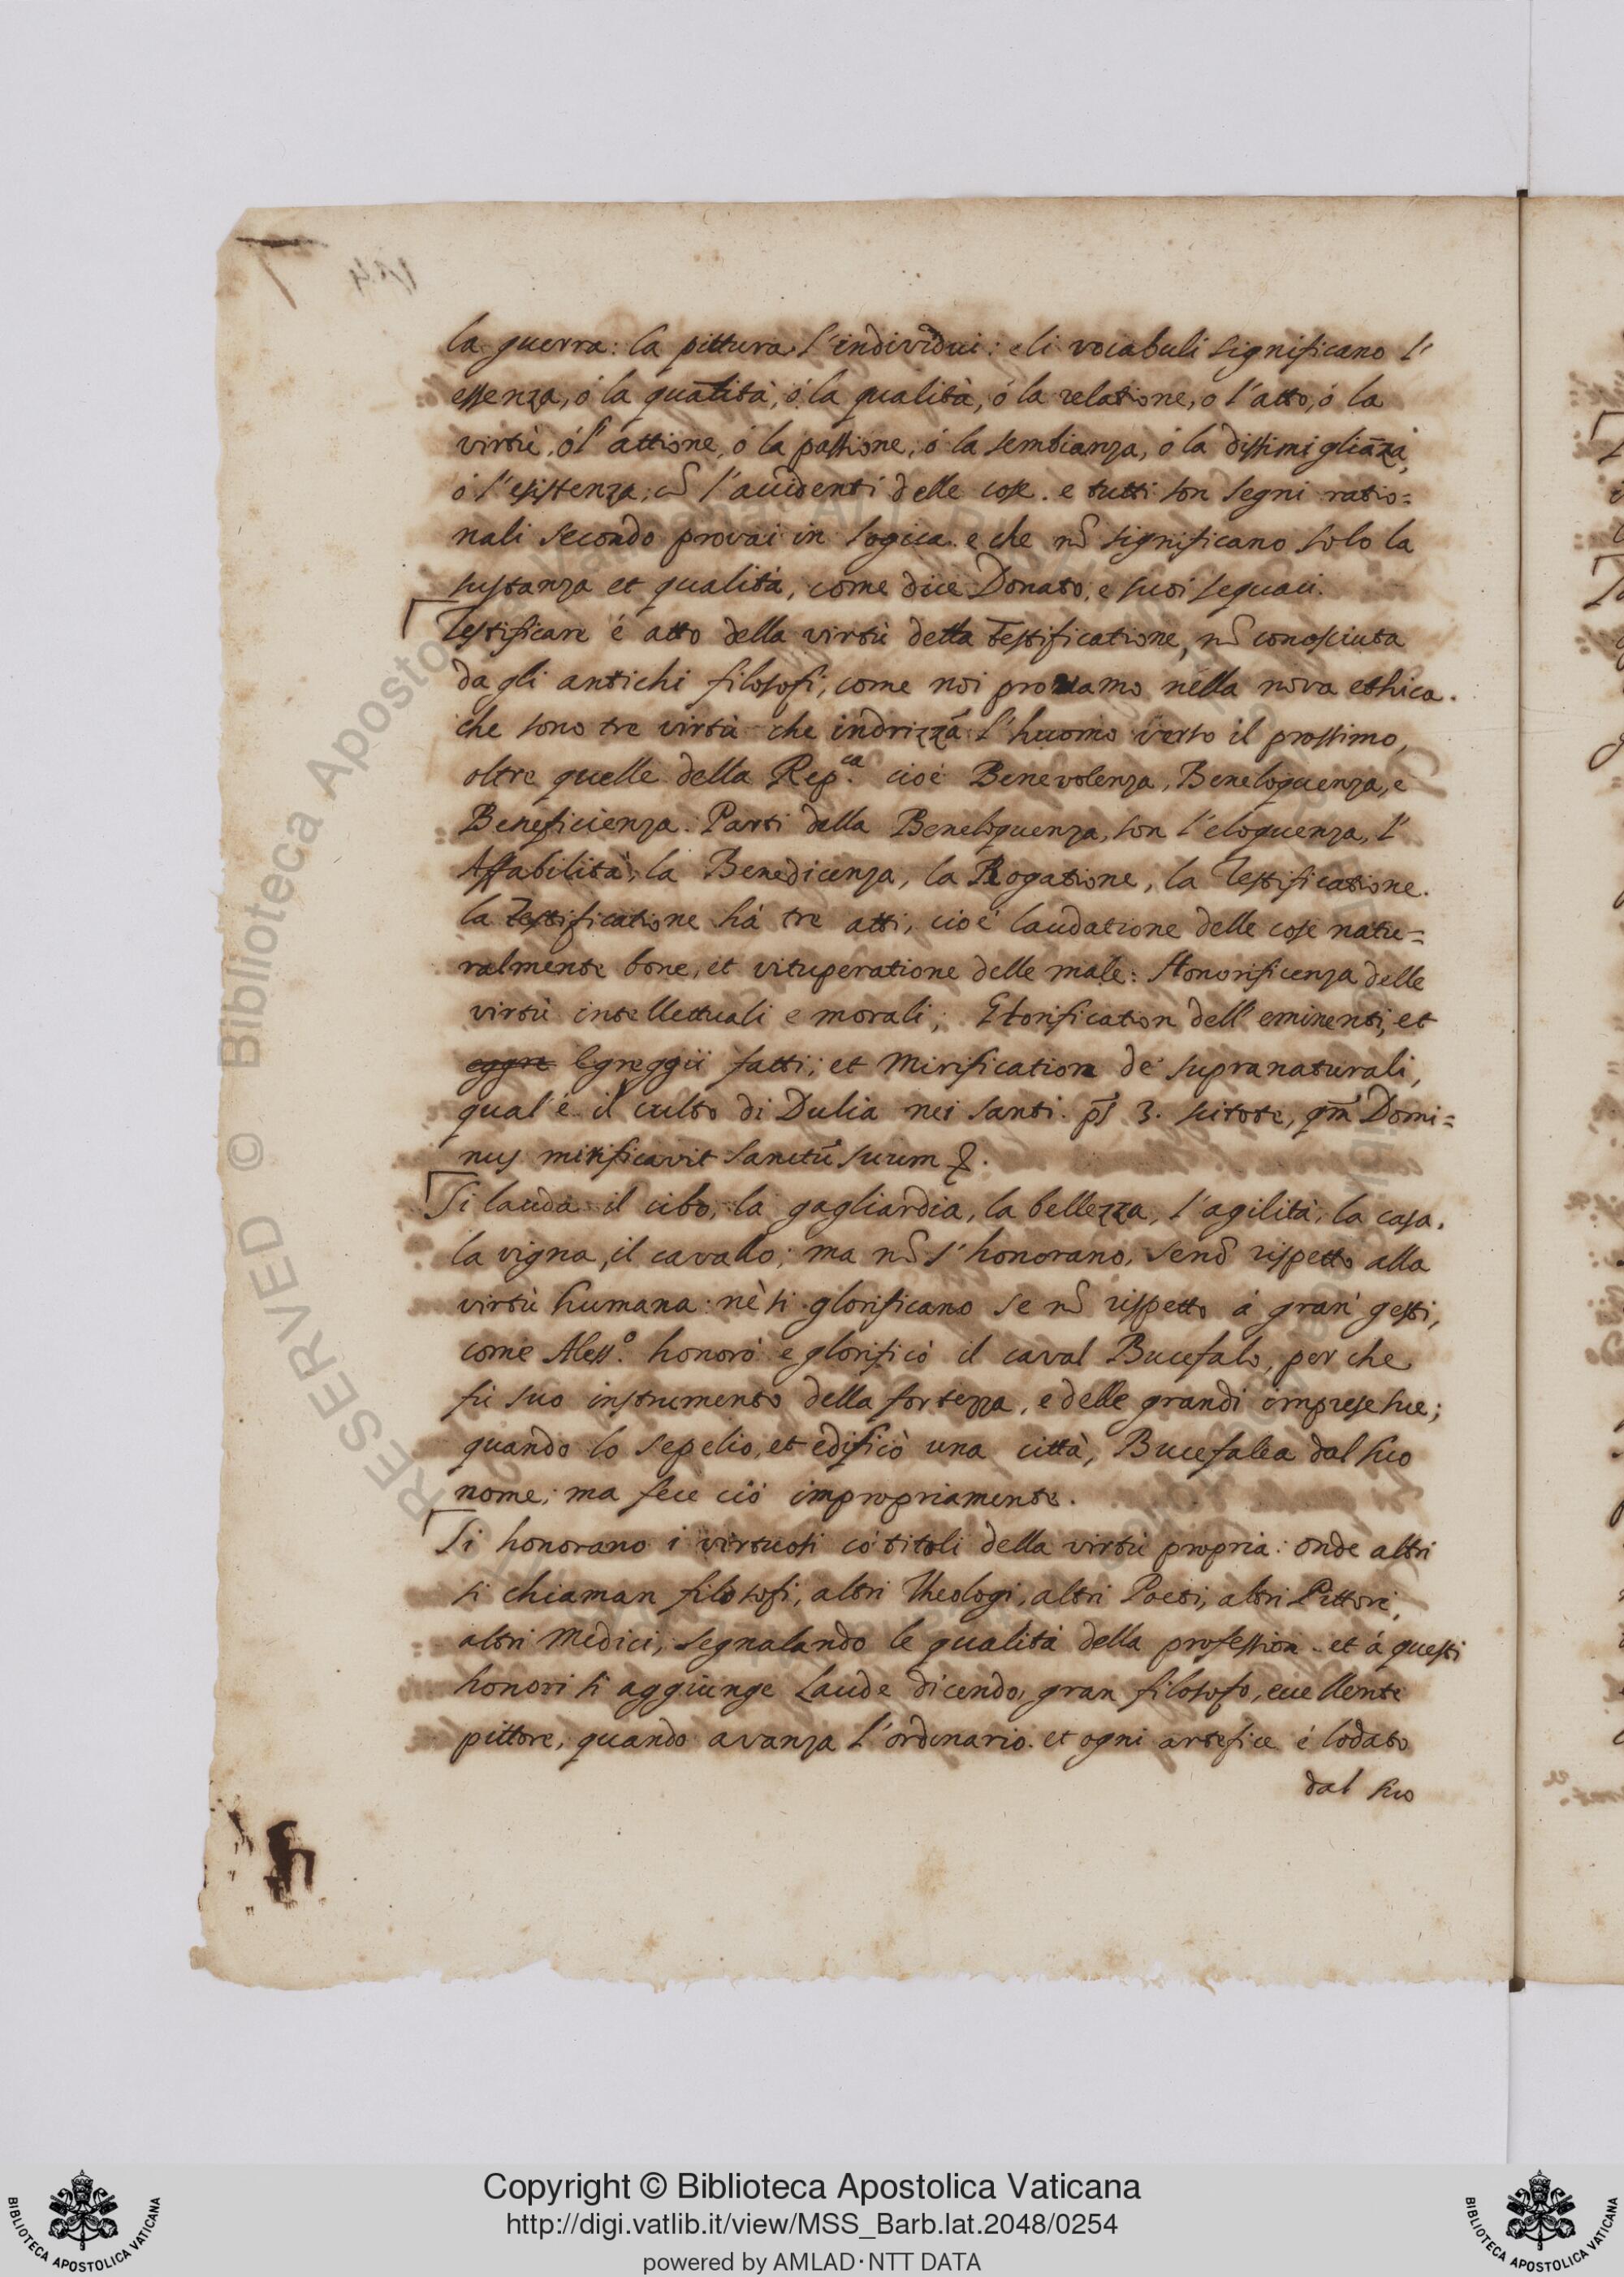 la guerra: la pittura l'individui: e li vocabuli significano l'
essenza, ó la quātità, ó la qualità, ó la relatione, o l'atto, ó la
virtù, ó l'attione, ó la passione, ó la sembianza, ó la dissimigliāza,
ó l'esistenza, l'accidenti delle cose. e tutti son segni ratio=
nali secondo provai in logica. e che nō significano solo la
sustanza et qualità, come dice Donato, e suoi sequaci.
Testificare é atto della virtù detta Testificatione, nō conosciuta
da gli antichi filosofi, come noi provamo nella nova ethica.
che sono tre virtù che indrizzā l'huomo verso il prossimo,
oltre quelle della Rep.ca cioé Benevolenza, Beneloquenza, e
Beneficienza. Parti della Beneloquenza, son l'eloquenza, l'
Affabilità, la Benedicenza, la Rogatione, la Testificatione.
la Testificatione há tre atti, cioé laudatione delle cose natu=
ralmente bone, et vituperatione delle male: Honorificenza delle
virtù intellettuali e morali; Glorification dell'eminenti, et
eggre Egreggii fatti; et Mirification de' supranaturali,
qual'é il culto di Dulia nei santi. ps 3. scitote, qm̄ Domi=
nus mirificavit sanctū suum
Si lauda il cibo, la gagliardia, la bellezza, l'agilità, la casa,
la vigna, il cavallo; ma nō s'honorano, senō rispetto alla
virtù humana: nè si glorificano se nō rispetto á gran gesti,
come Aless.o honoró e glorificó il caval Bucefalo, per che
fù suo instrumento della fortezza, e delle grandi imprese sue;
quando lo sepelio, et edificò una città, Bucefalea dal suo
nome; ma fece ció impropriamente.
Si honorano i virtuosi có titoli della virtù propria: onde altri
si chiaman filosofi, altri Theologi, altri Poeti, altri Pittori,
altri Medici, segnalando le qualità della profession. et á questi
honori si aggiunge Laude dicendo, gran filosofo, eccellente
pittore, quando avanza l'ordinario. et ogni artefice é lodato
dal suo
Copyright © Biblioteca Apostolica Vaticana
http://digi.vatlib.it/view/MSS_Barb.lat.2048/0254
powered by AMLAD·NTT DATA
BIBLIOTECA APOSTOLICA VATICANA
BIBLIOTECA APOSTOLICA VATICANA